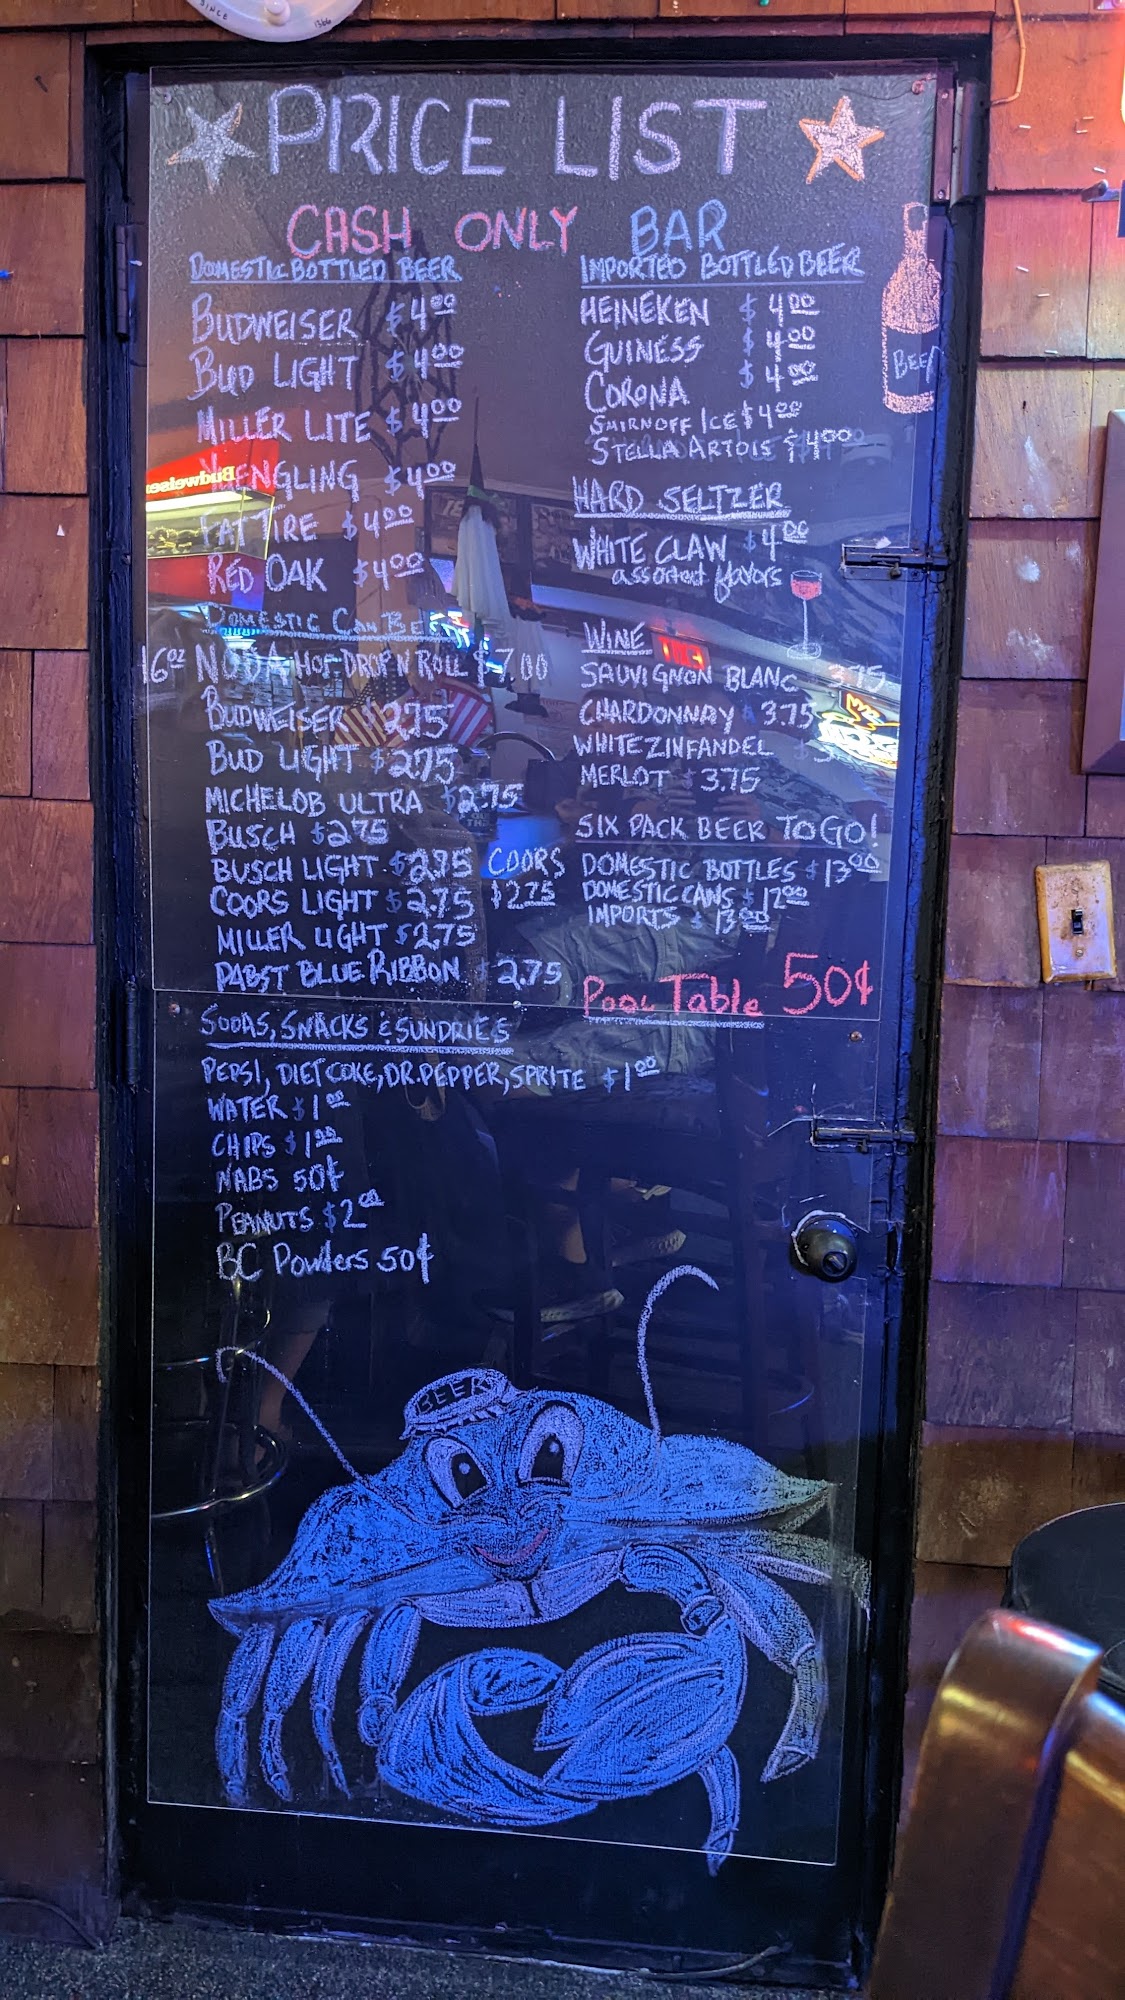 SINCE 1366
PRICE LIST
CASH ONLY BAR
DOMESTIC BOTTLED BEER
BUDWEISER $4.00
BUD LIGHT $4.00
MILLER LITE $4.00
YUENGLING $4.00
FAT TIRE $4.00
RED OAK $4.00
DOMESTIC CAN BEER
16oz NODA HOP DROP N ROLL $7.00
BUDWEISER $2.75
BUD LIGHT $2.75
MICHELOB ULTRA $2.75
BUSCH $2.75
BUSCH LIGHT $2.75 COORS
COORS LIGHT $2.75 $2.75
MILLER LIGHT $2.75
PABST BLUE RIBBON $2.75
IMPORTED BOTTLED BEER
HEINEKEN $4.00
GUINESS $4.00
CORONA $4.00
SMIRNOFF ICE $4.00
STELLA ARTOIS $4.00
BEER
HARD SELTZER
WHITE CLAW $4.00
assorted flavors
WINE
SAUVIGNON BLANC 3.75
CHARDONNAY 3.75
WHITE ZINFANDEL
MERLOT 3.75
SIX PACK BEER TO GO!
DOMESTIC BOTTLES $13.00
DOMESTIC CANS $12.00
IMPORTS $13.00
POOL Table 50¢
SODAS, SNACKS & SUNDRIES
PEPSI, DIET COKE, DR. PEPPER, SPRITE $1.00
WATER $1.00
CHIPS $1.00
NABS 50¢
PEANUTS $2.00
BC Powders 50¢
BEER
Budweiser